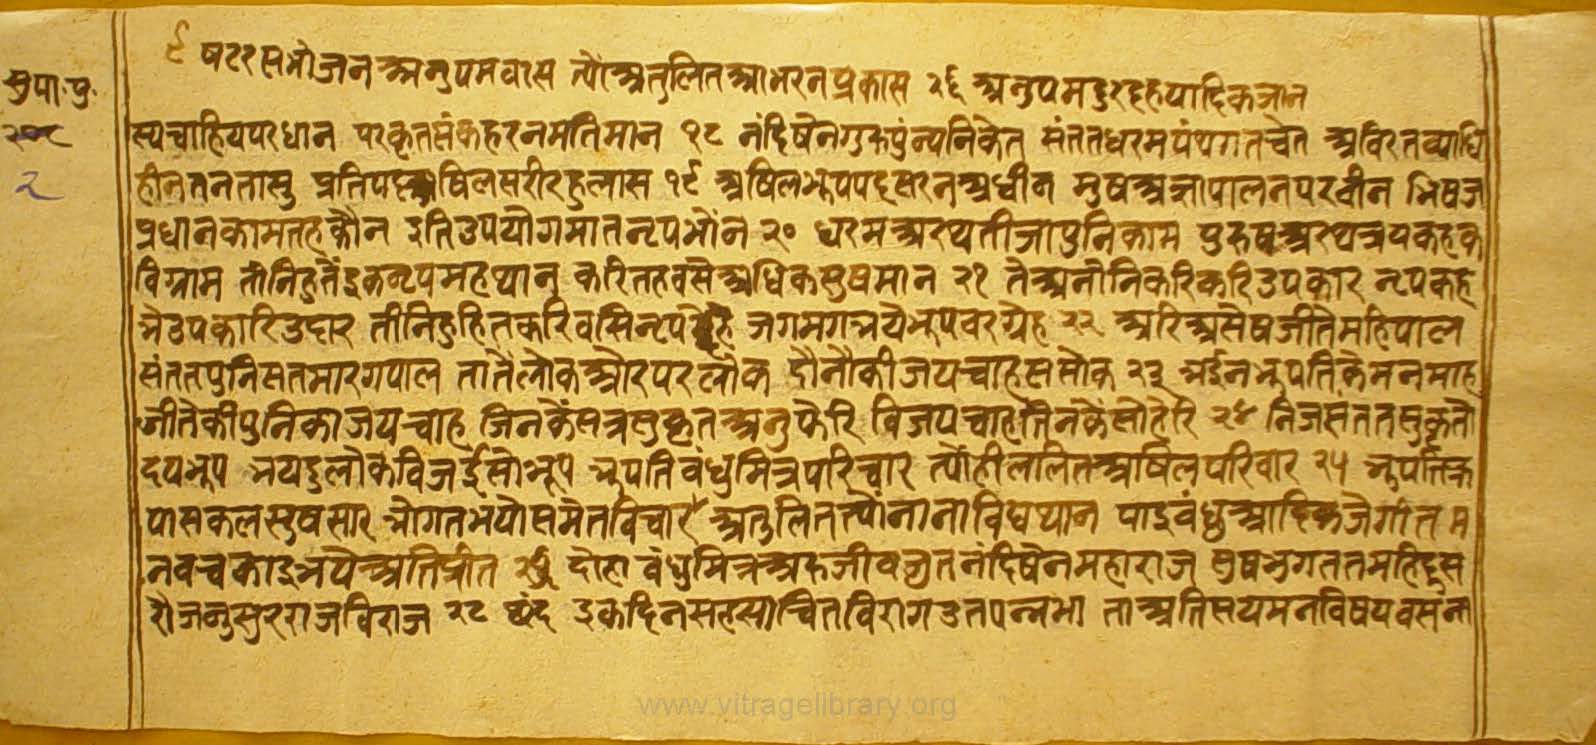 ९ षटरसभोजन अनुपमवास त्यौं अतुलितआभरनप्रकास २६ अनुपमदुरदहयादिकजान
सुपा॰पु॰
स्यचाहियपरधान परकृतसंकहरनमतिमान १८ नंदिषेनगुरुपुंन्यनिकेत संततधरमपंथगतचेत अविरतव्याधि
२
हीनतनतासु प्रतिपक्षअषिलसरीरहुलास १९ अषिलभूपपदसरनअधीन मुषअज्ञापालनपरवीन भिषज
प्रधानकामतहकौन इतिउपयोगमातनृपभौंन २० धरमअरथतीजापुनिकाम पुरुषअरथत्रयकहक
विग्राम तीनिहुतैंइकनृपमहथान करितहवसैअधिकसुषमान २१ तेअनीनिकरिकरिउपकार नृपकह
भैउपकारिउदार तीनिहुहितकरिवसिनृप देह जगमगत्रयैभूपवरग्रेह २२ अरिअसेषजीतैमहिपाल
संततपुनिसतमारगपाल तातैलोकऔरपरलोक दौनौकीजयचाहससोक २३ भईनभूपतिकैमनमाह
जीतेकीपुनिकाजयचाह जिनकैंसत्रसुकृतअनुफेरि विजयचाहतिनकैंसोहेरि २४ निजसंततसुकृतौ
दयभूप भयदुलोकविजईसोभूप भूपतिवंधुमित्रपरिचार त्यौंहीललितअषिलपरिवार २५ भूपतिक
पासकलसुषसार भोगतभयोसमेतविचार अतुलितत्यौंनानाविधथान पाइवंधुआदिकजैगीत म
नवचकाइभयेअतिप्रीत दोहा वंधुमित्रअरुजीवजुतनंदिषेनमहाराज सुषभुगततमहि
रौजनुसुरराजविराज २८ छंद इकदिनसहसाचितविरागउतपन्नभा ताअतिसयमनविषयवसन
www.vitragelibrary.org